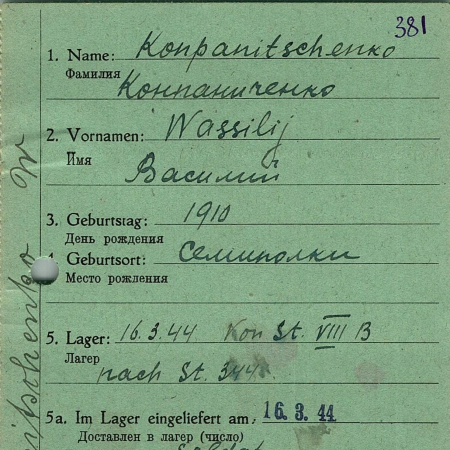 381
1. Name: Konpanitschenko
Фамилия
Конпаниченко
2. Vornamen: Wassilij
Имя
Василий
3. Geburtstag: 1910
День рождения
4. Geburtsort: Семиполки
Место рожления
5. Lager: 16.3.44 Kon St. VIII B
Лагер
nach St. 344
5a. Im Lager eingeliefert am: 16. 3. 44
Доставлен в лагер (число)